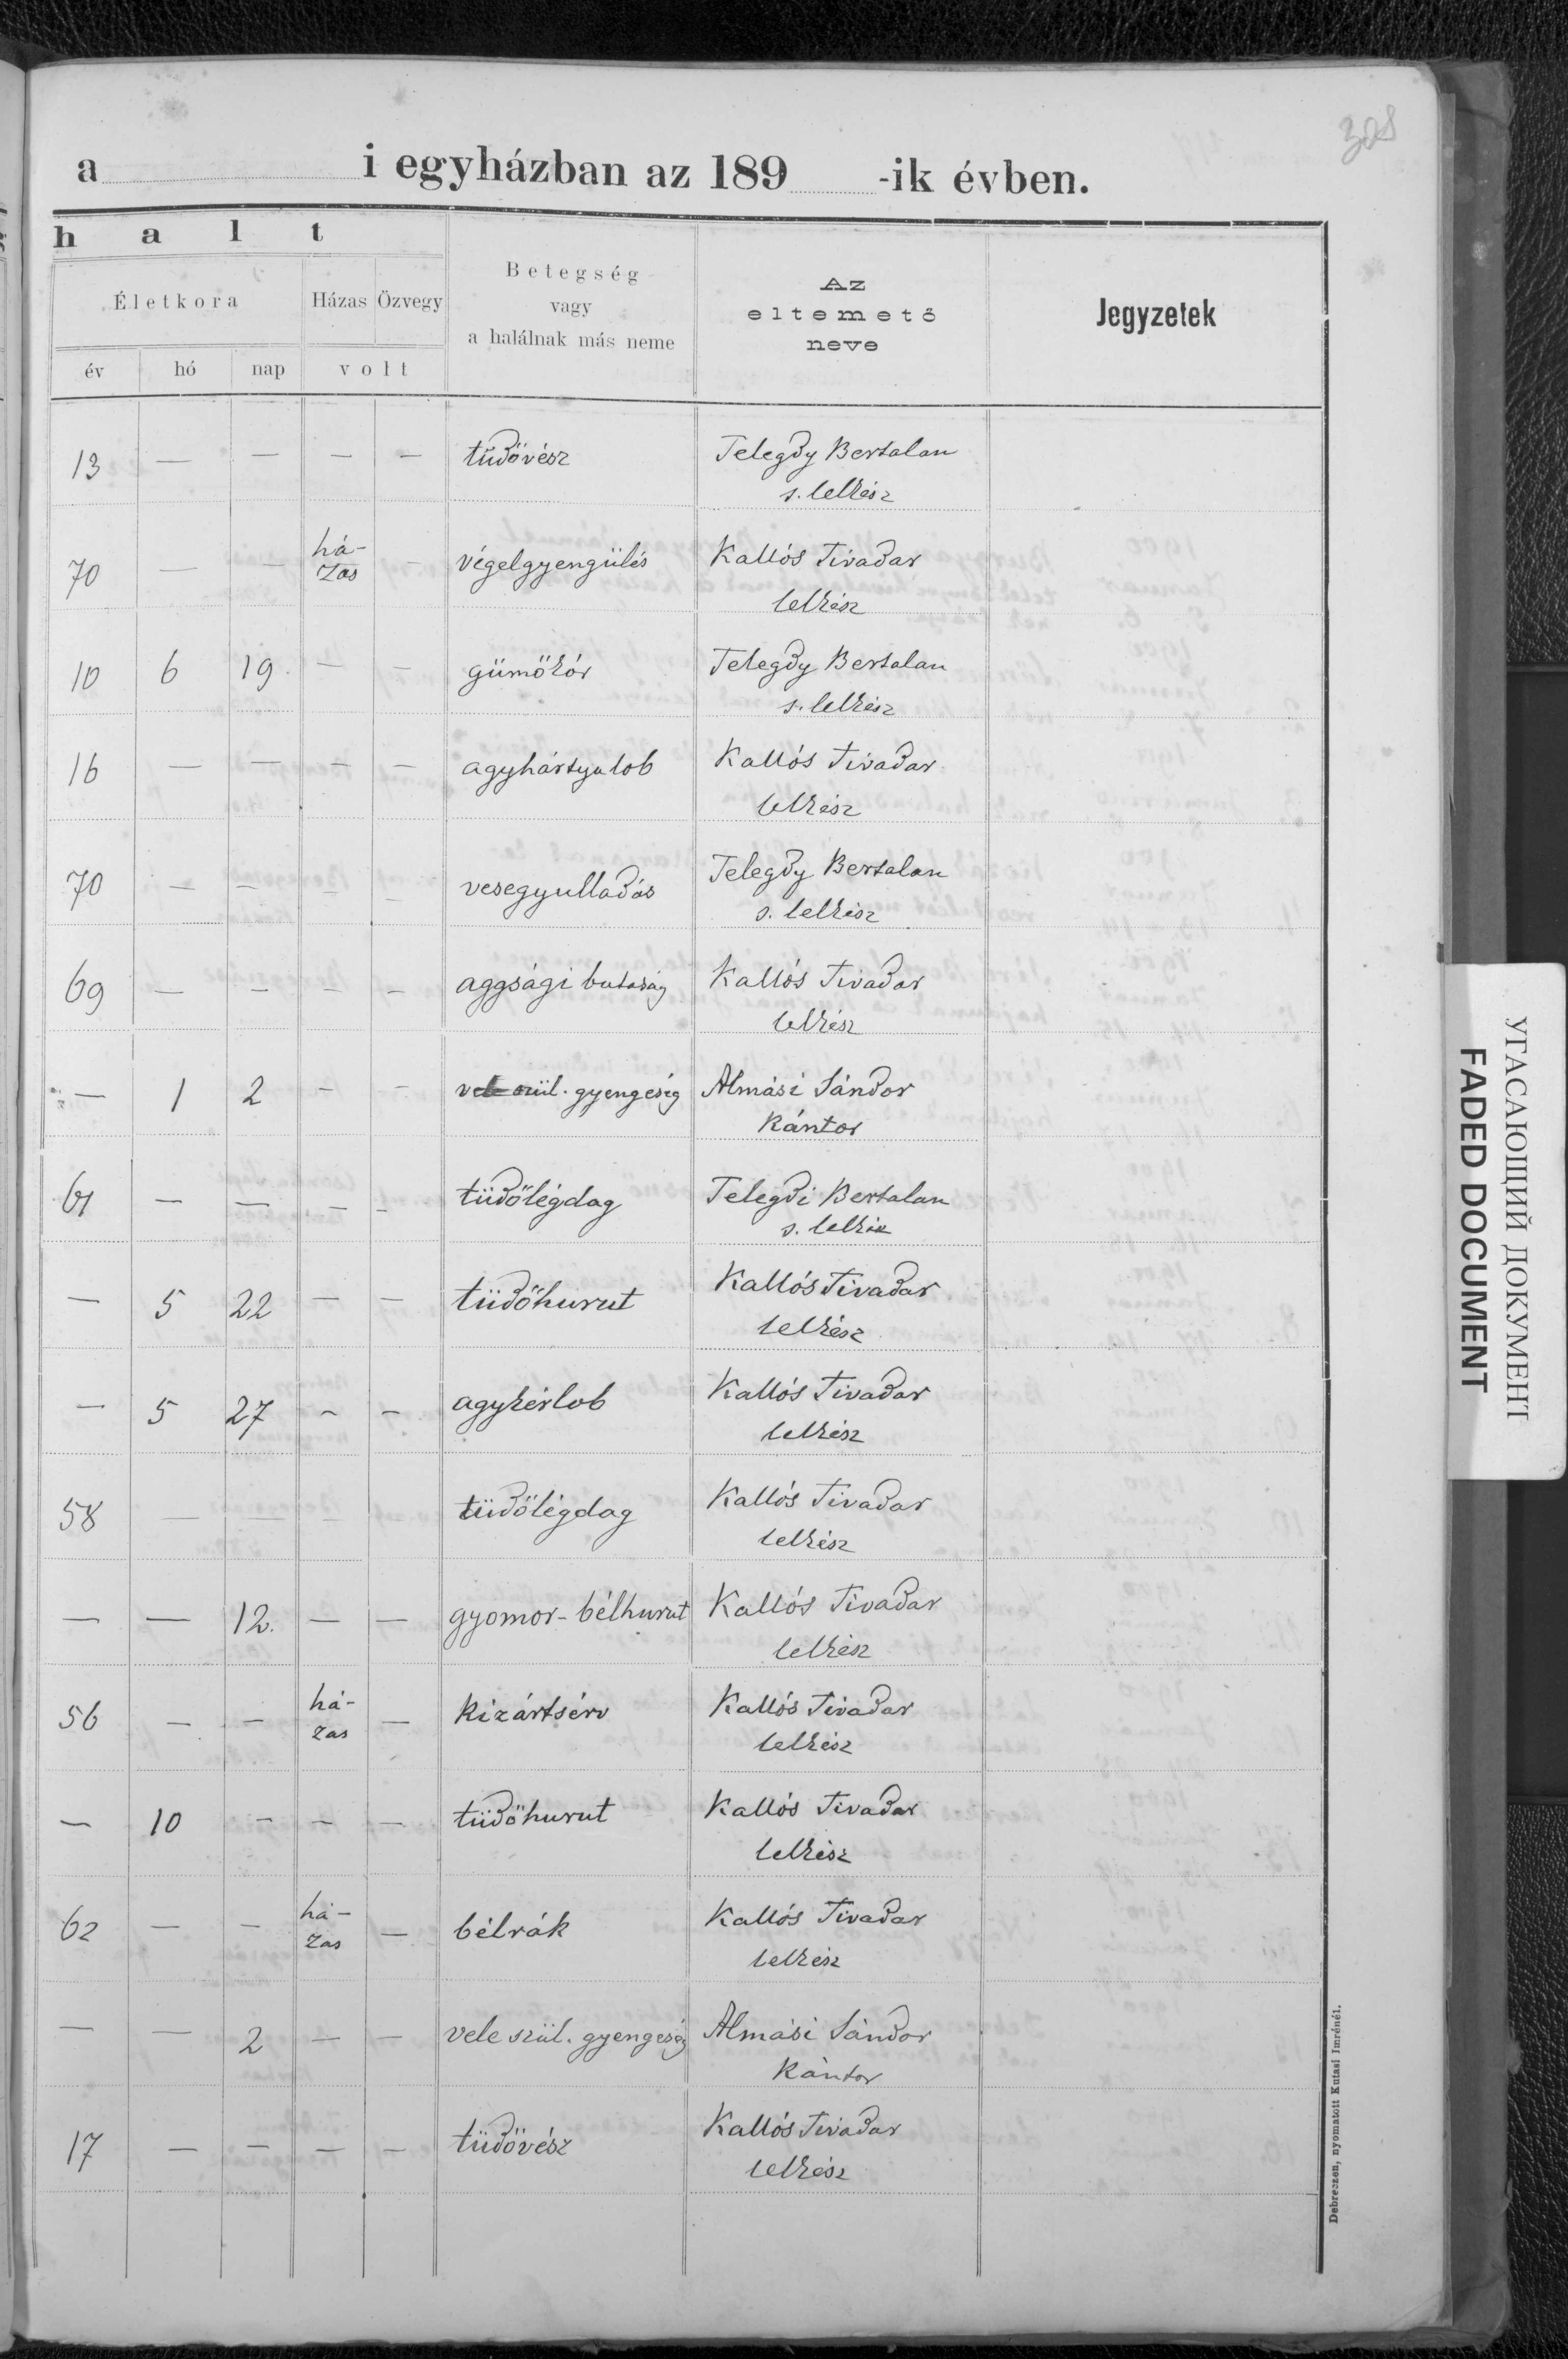 308
a i egyházban az 189 -ik évben.
h a l t
Életkora
Házas Özvegy
Betegség
vagy
a halálnak más neme
Az
eltemető
neve
Jegyzetek
év hó nap volt
13 — — — — tüdővész Telegdy Bertalan
s. lelkész
70 — — há- — végelgyengülés Kallós Tivadar
zas lelkész
10 6 19. — — gümőkór Telegdy Bertalan
s. lelkész
16 — — — — agyhártyalob Kallós Tivadar
lelkész
70 — — — — vesegyulladás Telegdy Bertalan
s. lelkész
69 — — — — aggsági butaság Kallós Tivadar
lelkész
— 1 2 — — vele szül. gyengeség Almási Sándor
Kántor
61 — — — — tüdőlégdag Telegdi Bertalan
s. lelkész
— 5 22 — — tüdőhurut Kallós Tivadar
lelkész
— 5 27 — — agykérlob Kallós Tivadar
lelkész
58 — — — — tüdőlégdag Kallós Tivadar
lelkész
— — 12. — — gyomor-bélhurut Kallós Tivadar
lelkész
56 — — há- — kizártsérv Kallós Tivadar
zas lelkész
— 10 — — — tüdőhurut Kallós Tivadar
lelkész
62 — — há- — bélrák Kallós Tivadar
zas lelkész
— — 2 — — vele szül. gyengeség Almási Sándor
Kántor
17 — — — — tüdővész Kallós Tivadar
lelkész
Debreczen, nyomatott Kutasi Imrénél.
УГАСАЮЩИЙ ДОКУМЕНТ
FADED DOCUMENT